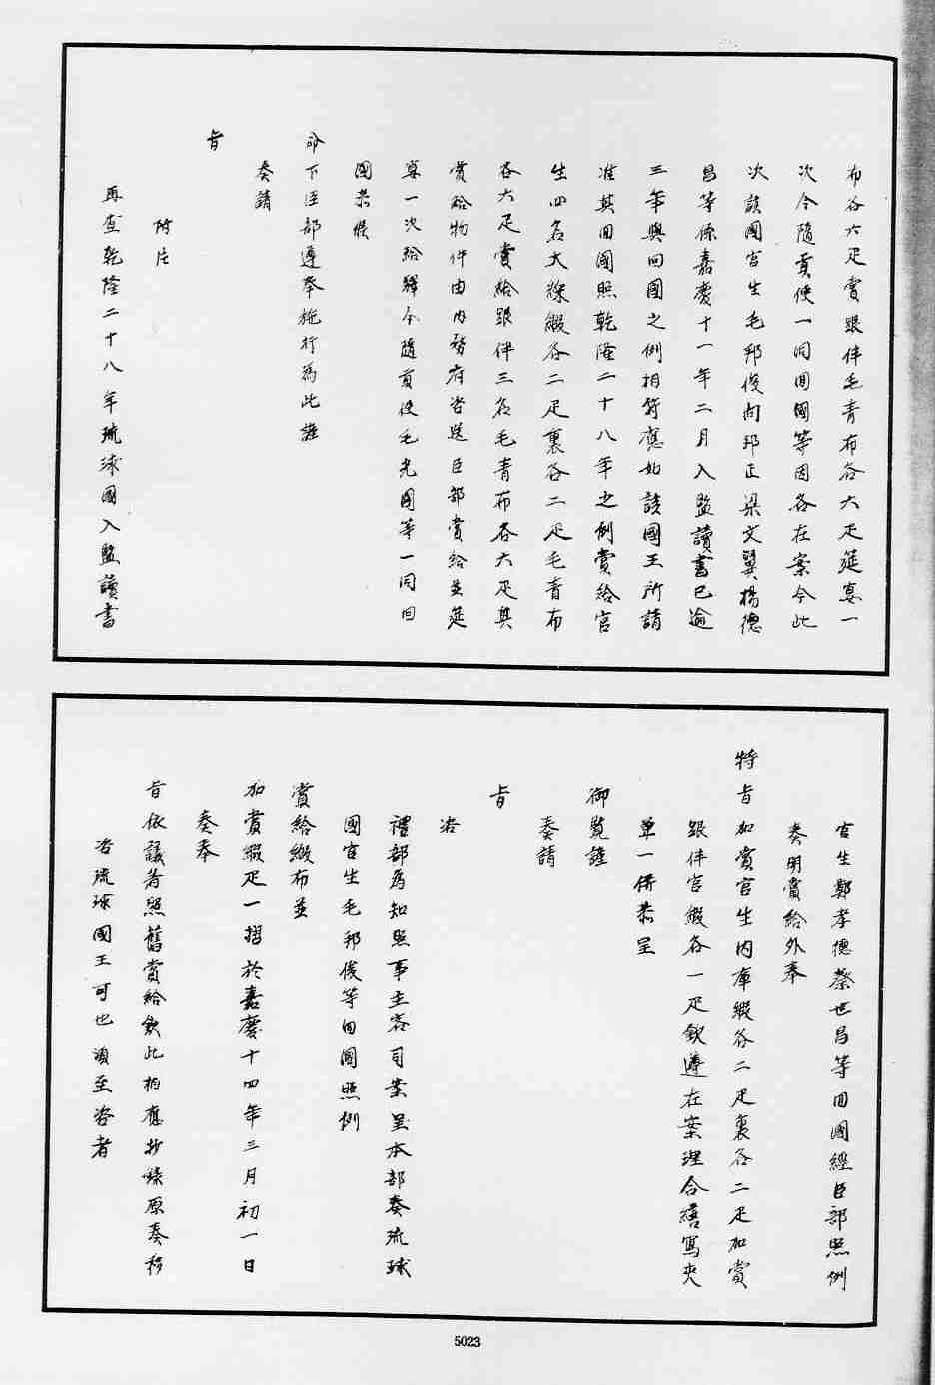 布各六疋賞跟伴毛青布各六疋筵宴一
次令隨貢使一同回國等因各在案今此
次該國官生毛邦俊向邦正梁文翼楊德
昌等係嘉慶十一年二月入監讀書已逾
三年與回國之例相符應如該國王所請
准其回國照乾隆二十八年之例賞給官
生四名大綵緞各二疋裏各二疋毛青布
各六疋賞給跟伴三名毛青布各六疋其
賞給物件由內務府咨送臣部賞給並筵
宴一次給驛令隨貢使毛光國等一同回
國恭候
命下臣部遵奉施行為此謹
奏請
旨
附片
再查乾隆二十八年琉球國入監讀書
官生鄭孝德蔡世昌等回國經臣部照例
奏明賞給外奉
特旨加賞官生內庫緞各二疋裏各二疋加賞
跟伴官緞各一疋欽遵在案理合繕寫夾
單一併恭呈
御覽謹
奏請
旨
咨
禮部為知照事主客司案呈本部奏琉球
國官生毛邦俊等回國照例
賞給緞布並
加賞緞疋一摺於嘉慶十四年三月初一日
奏奉
旨依議著照舊賞給欽此相應抄錄原奏移
咨琉球國王可也須至咨者
5023